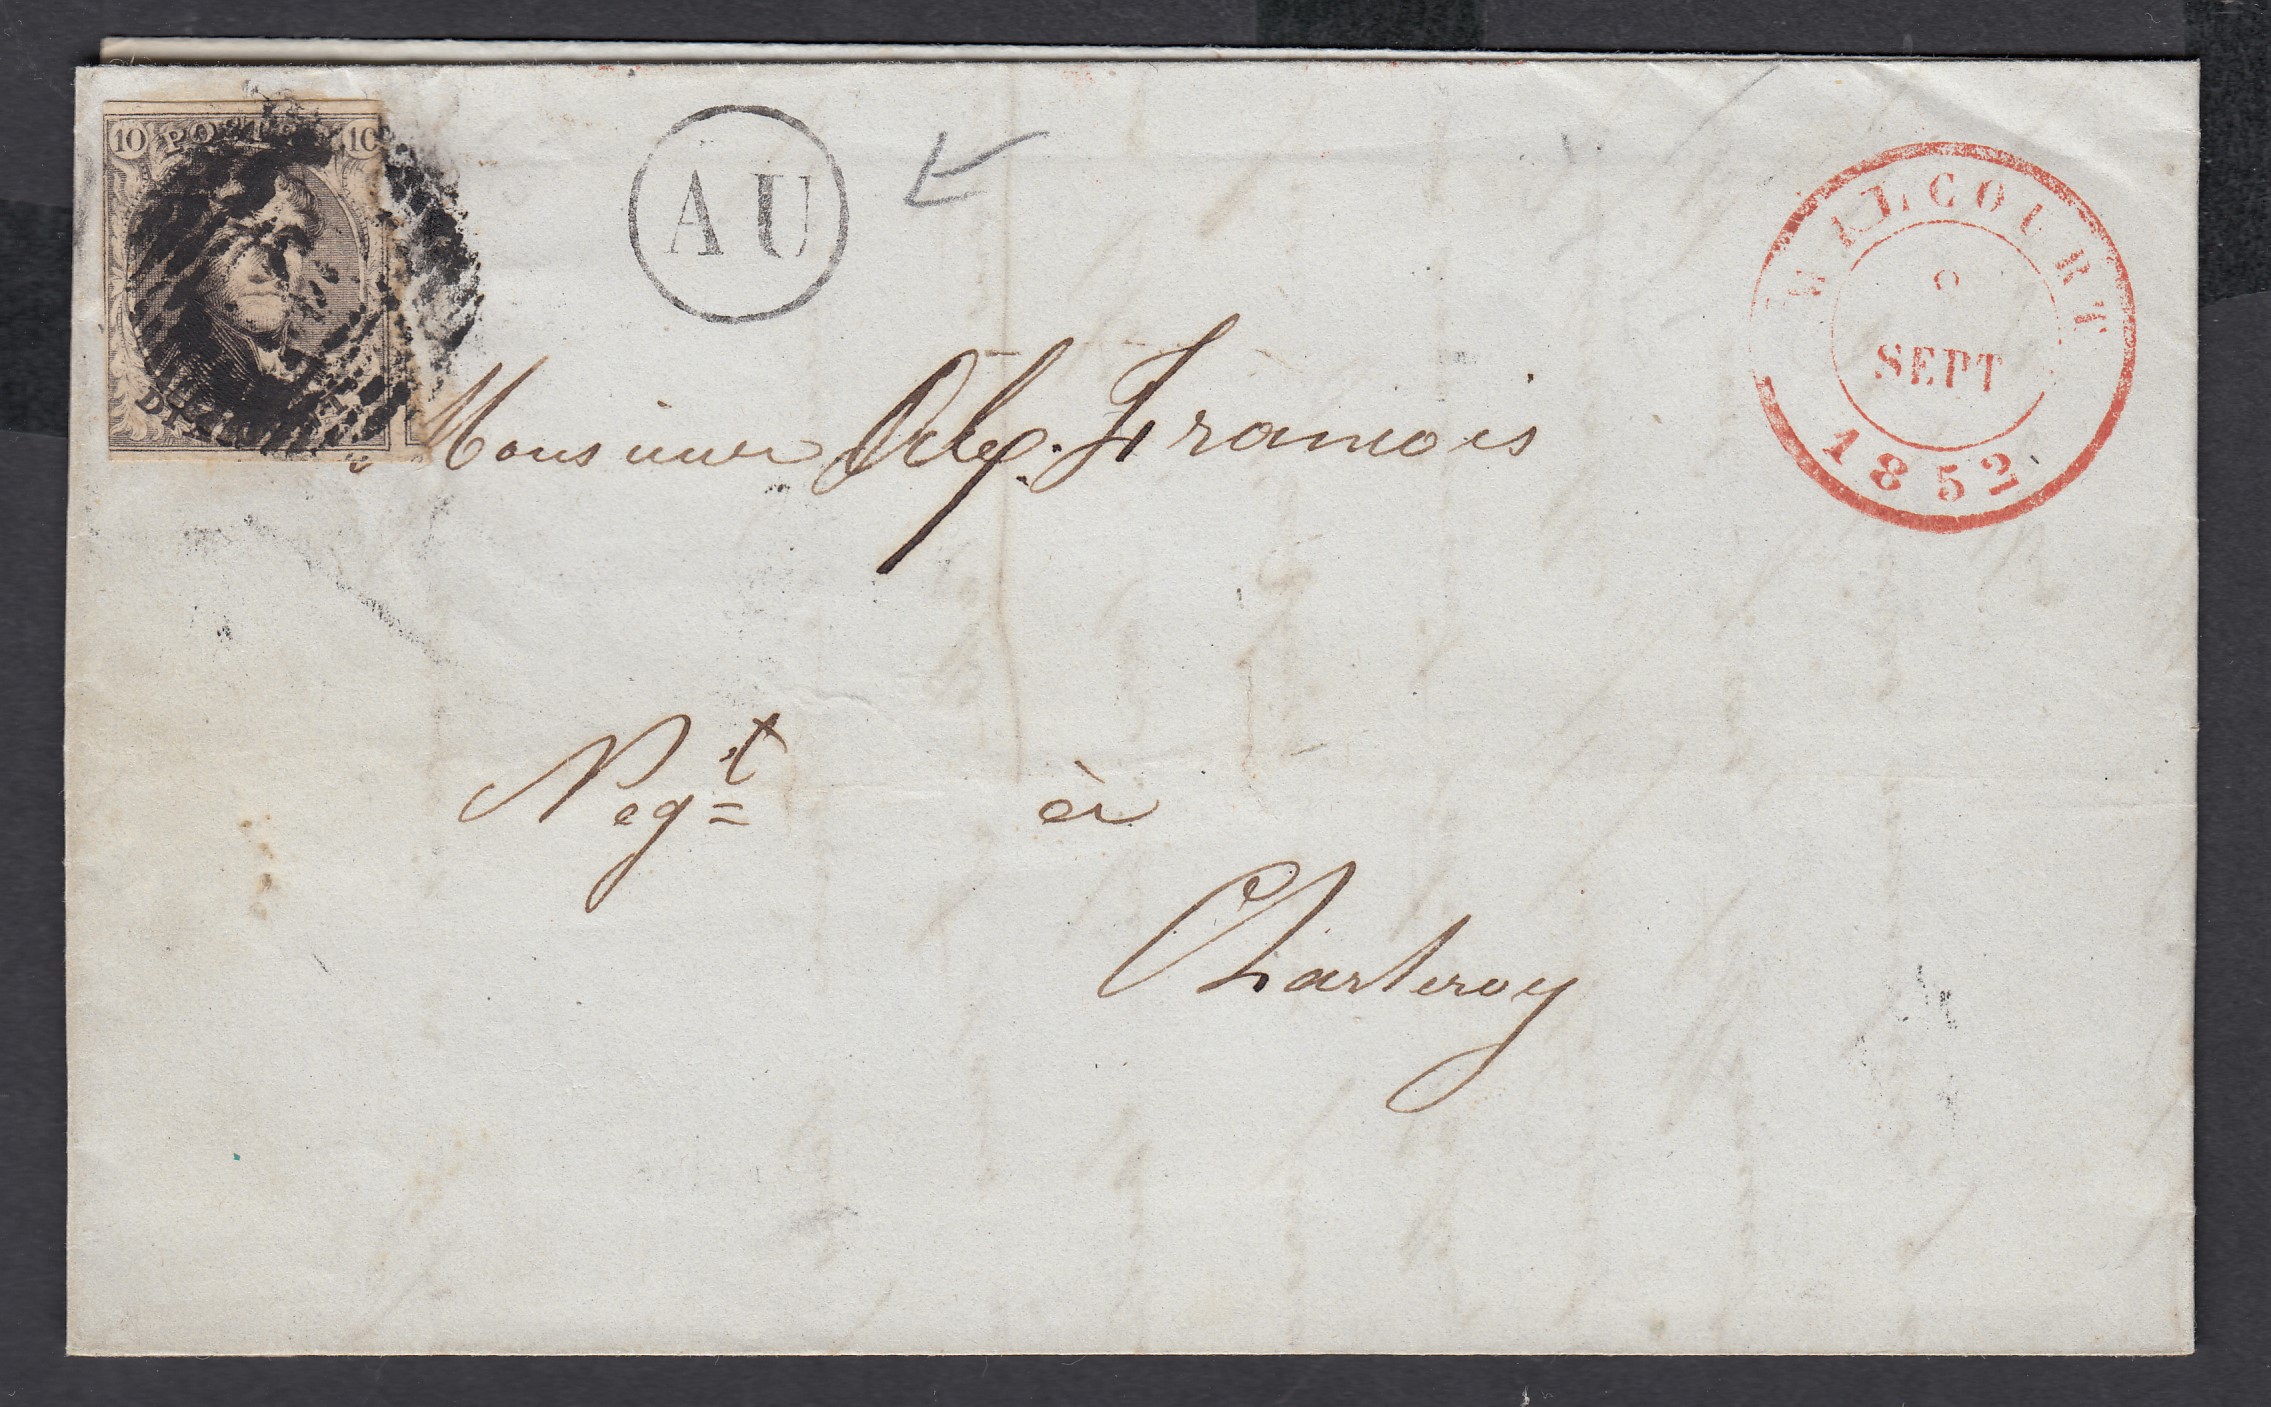 10 POSTES 10
A U
WALCOURT
SEPT
1852
Monsieur Alex. Francois
Negt à
Charleroy